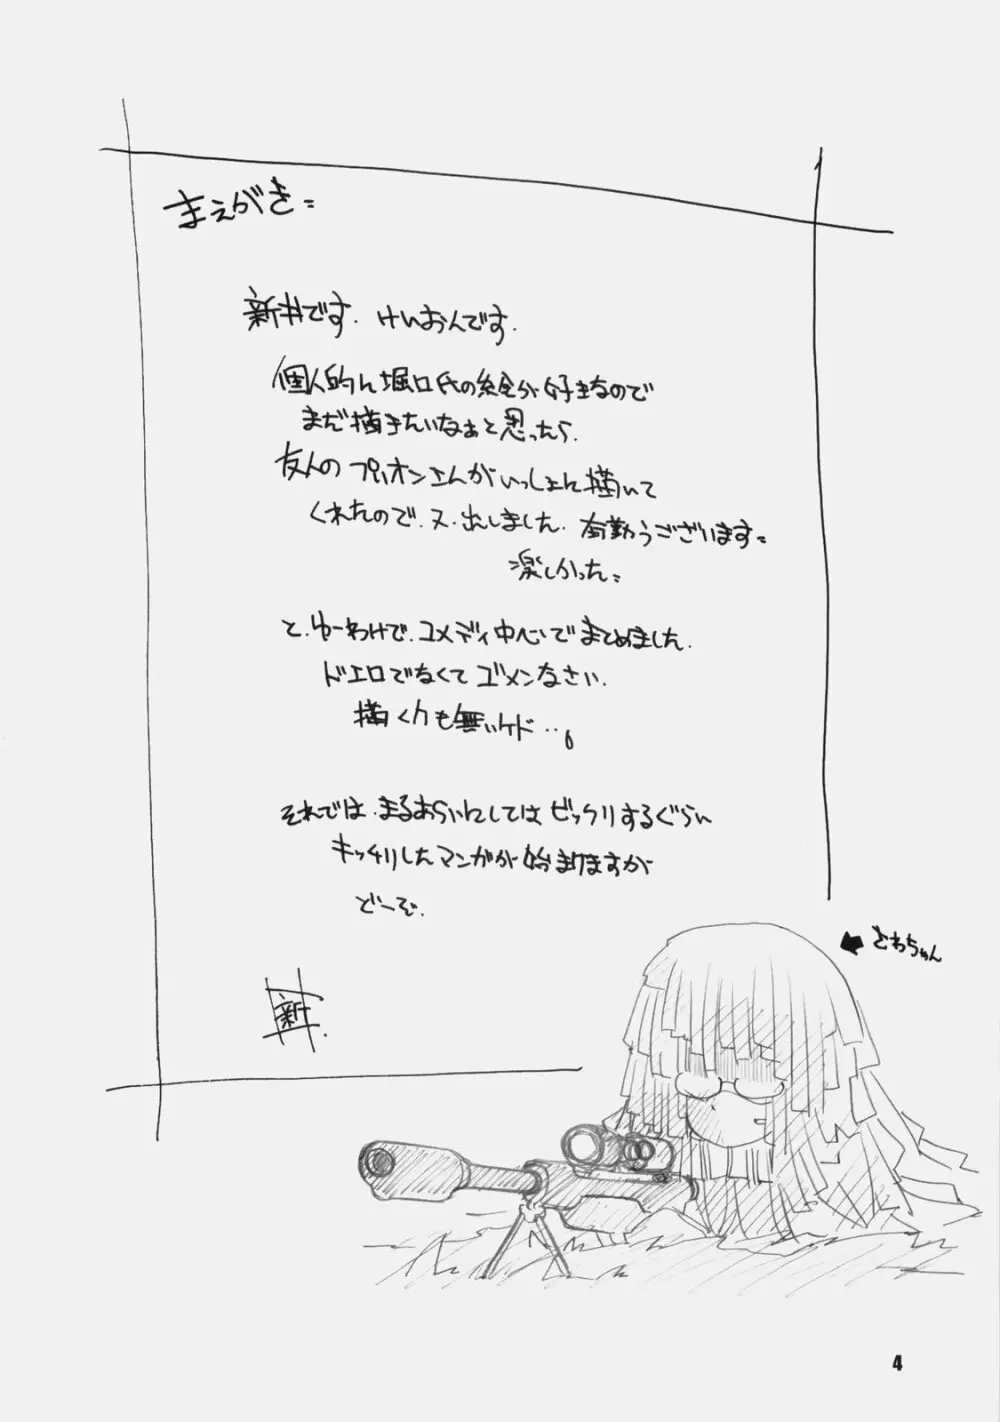 まえがき=
新井です. けいおんです.
個人的に堀口氏の絵が好きなので
まだ描きたいなぁと思ったら.
友人のプリオンさんがいっしょに描いて
くれたので.又.出しました. 有難うございます=
楽しかった=
と.ゆーわけで.コメディ中心でまとめました.
ドエロでなくてゴメンなさい.
描く力も無いケド…。
それでは.まるあらいにしてはビックリするぐらい
キッチリしたマンガが始まりますが
どーぞ.
新.
さわちゃん
4